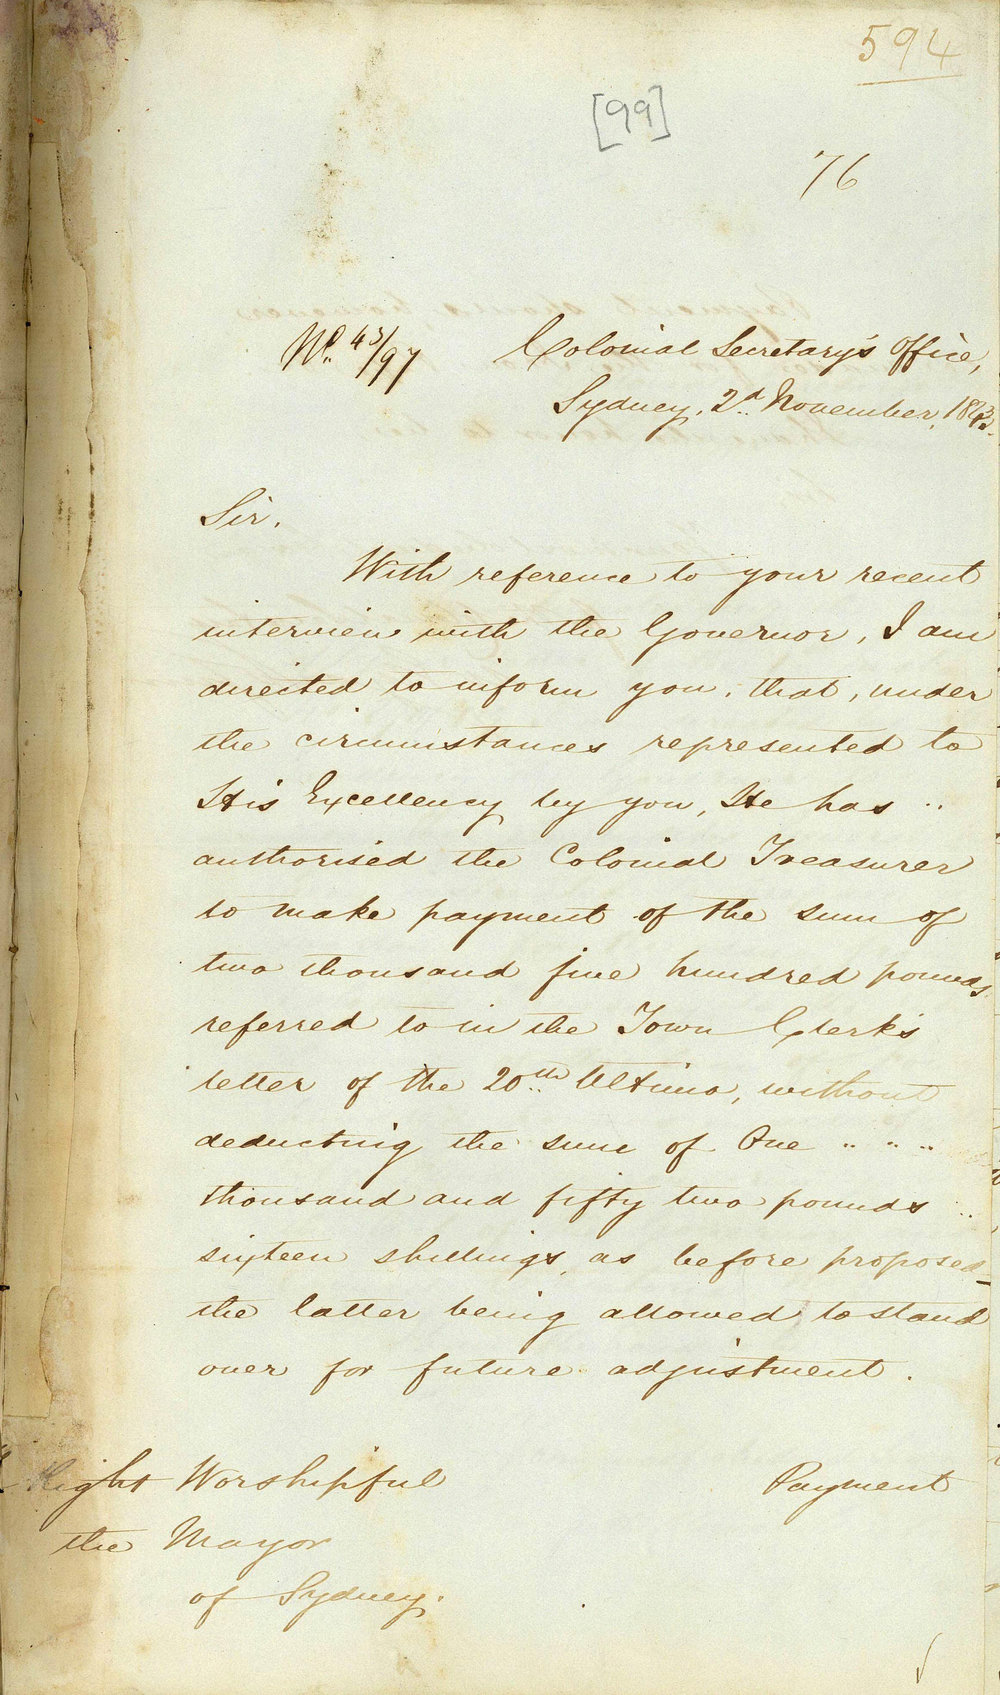 594
[99]
76
No. 43/97
Colonial Secretary's Office,
Sydney, 2d November, 1843.
Sir,
With reference to your recent
interview with the Governor, I am
directed to inform you, that, under
the circumstances represented to
His Excellency by you, He has ..
authorised the Colonial Treasurer
to make payment of the sum of
two thousand five hundred pounds,
referred to in the Town Clerk's
letter of the 20th Ultimo, without
deducting the sum of One " " "
thousand and fifty two pounds ..
sixteen shillings, as before proposed_
the latter being allowed to stand
over for future adjustment.
Right Worshipful
the Mayor
of Sydney.
Payment